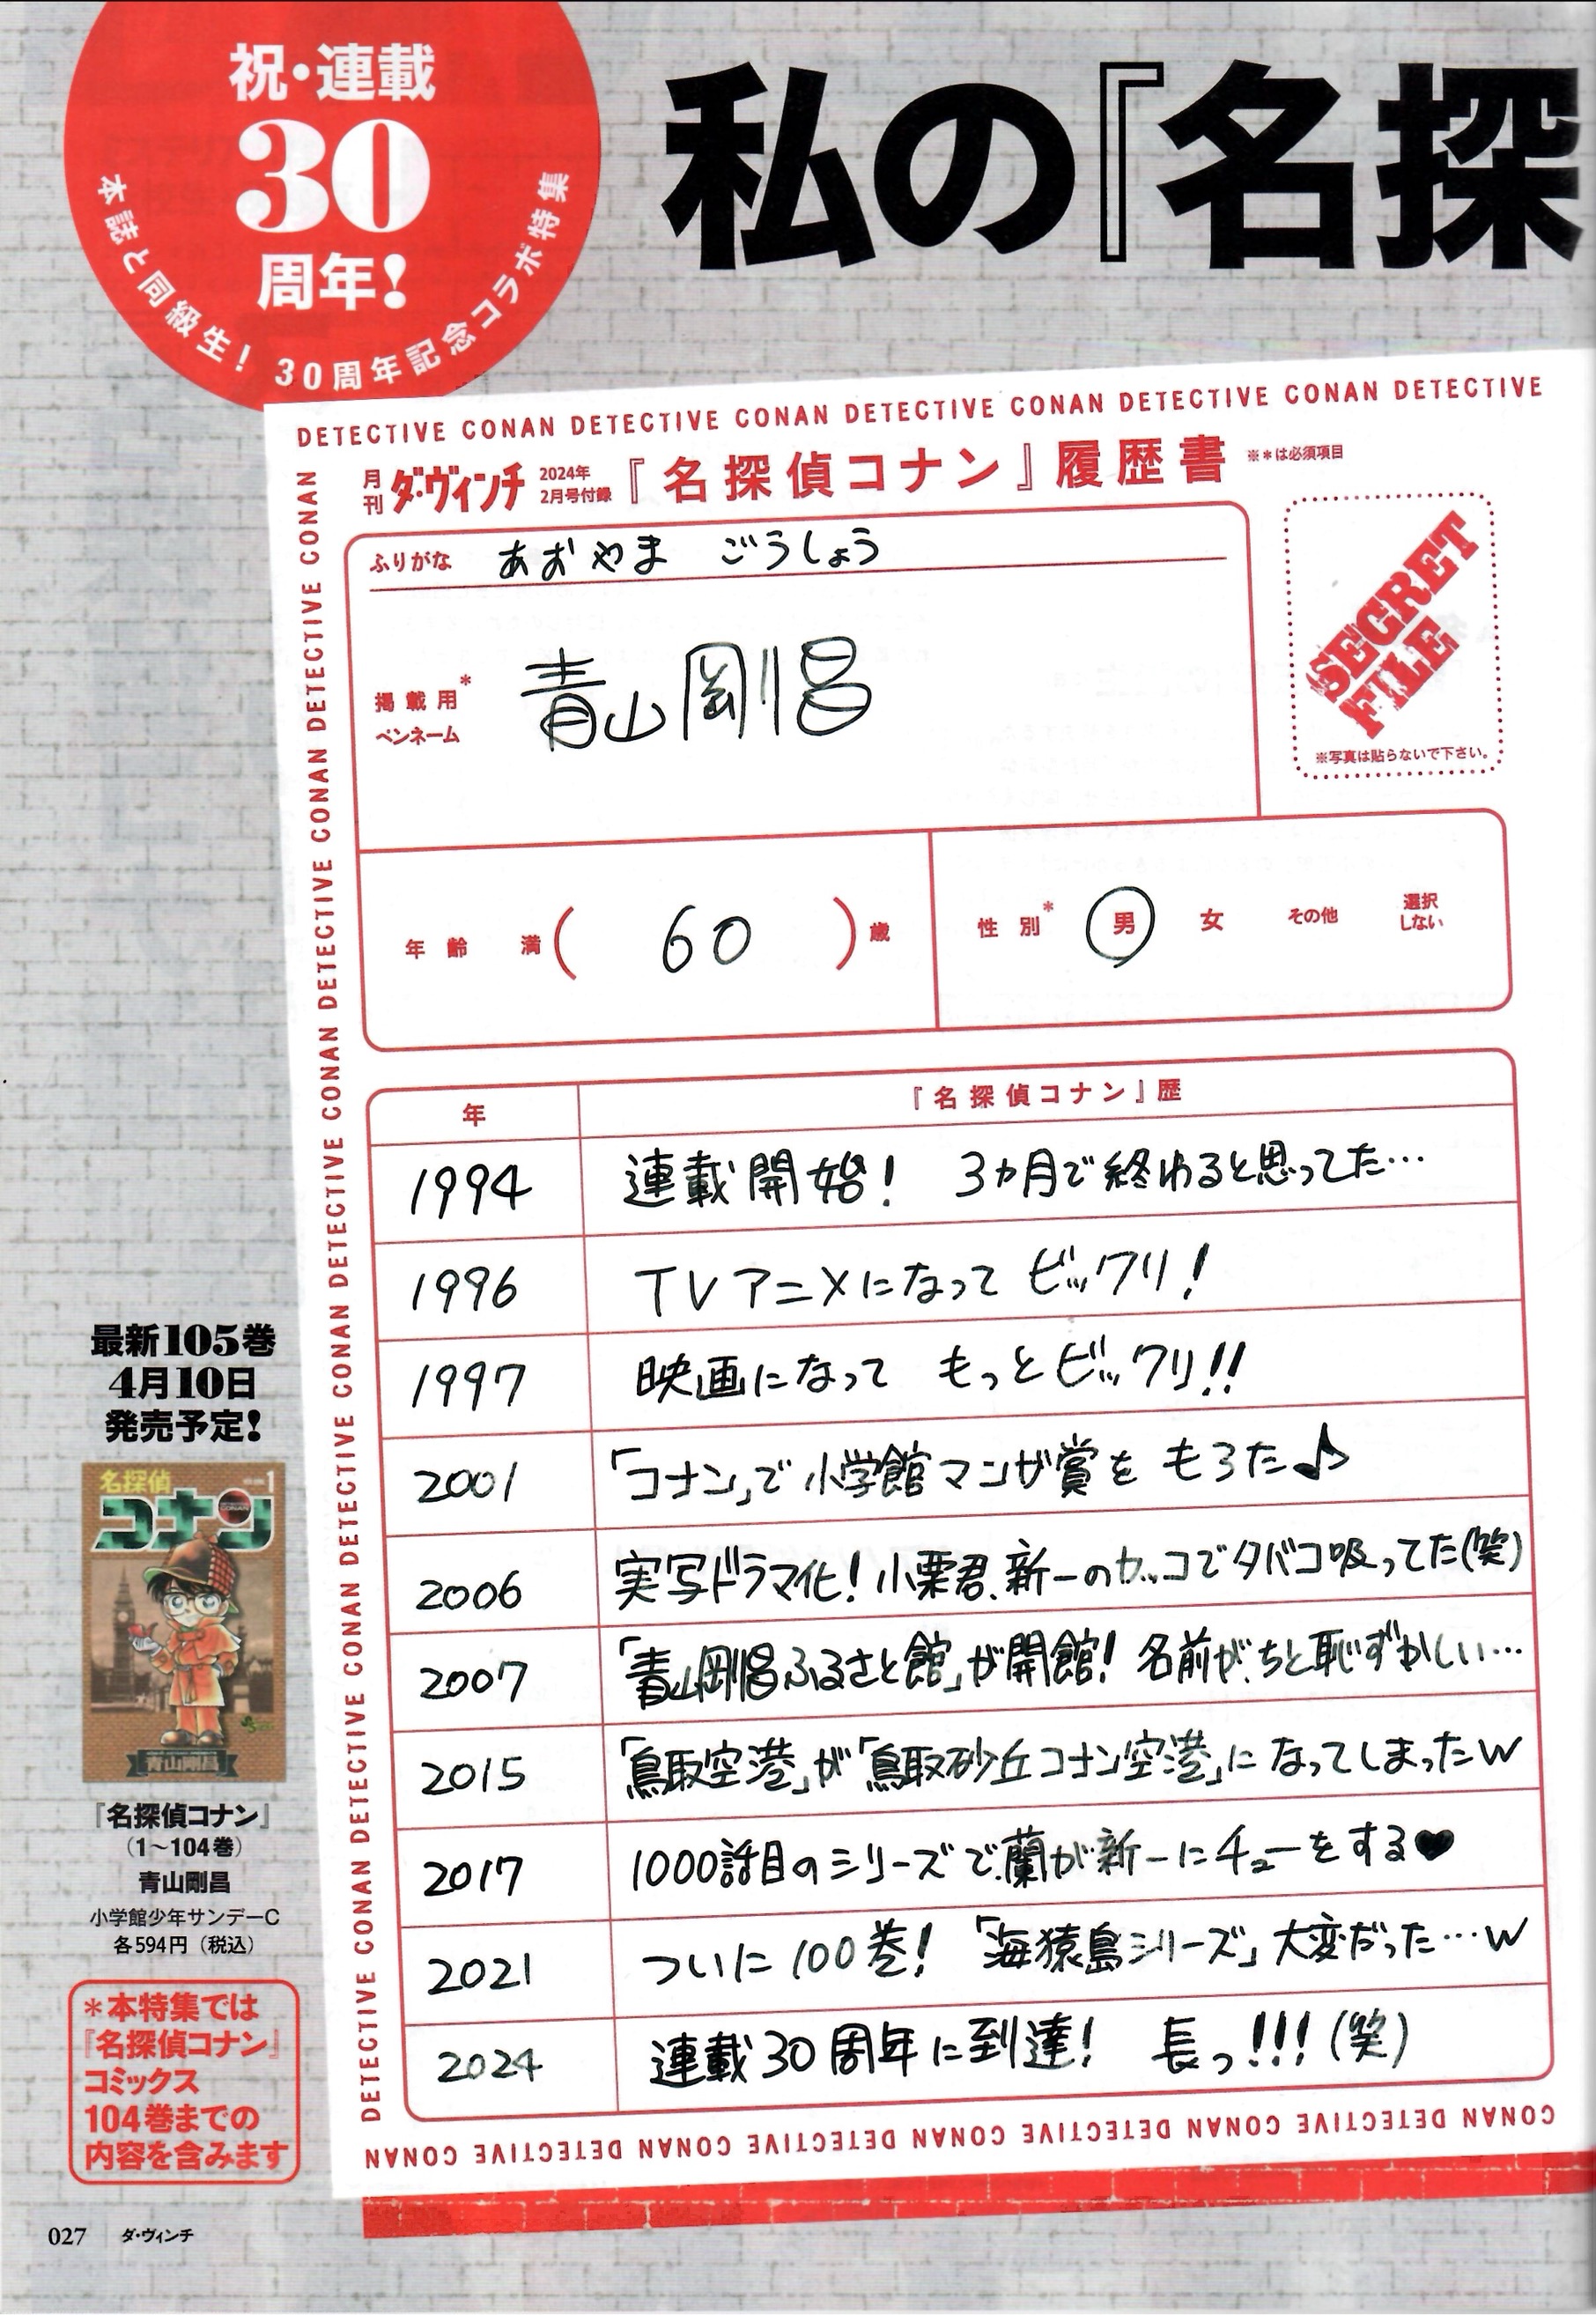 祝・連載
30
周年!
本誌と同級生! 30周年記念コラボ特集
私の『名探
DETECTIVE CONAN DETECTIVE CONAN DETECTIVE CONAN DETECTIVE CONAN DETECTIVE
月刊 ダ・ヴィンチ 2024年 2月号付録 『名探偵コナン』履歴書 ※*は必須項目
ふりがな あおやま ごうしょう
掲載用*
ペンネーム
青山剛昌
SECRET
FILE
※写真は貼らないで下さい。
年齢 満 ( 60 ) 歳
性別* 男 女 その他 選択しない
年 『名探偵コナン』歴
1994 連載開始! 3カ月で終わると思ってた…
1996 TVアニメになって ビックリ!
1997 映画になって もっとビックリ!!
2001 「コナン」で小学館マンガ賞を もろた♪
2006 実写ドラマ化! 小栗君、新一のカッコでタバコ吸ってた(笑)
2007 「青山剛昌ふるさと館」が開館! 名前が、ちと恥ずかしい…
2015 「鳥取空港」が「鳥取砂丘コナン空港」になってしまったw
2017 1000話目のシリーズで、蘭が新一にチューをする♥
2021 ついに100巻! 「海猿島シリーズ」大変だった…w
2024 連載30周年に到達! 長っ!!!(笑)
DETECTIVE CONAN DETECTIVE CONAN DETECTIVE CONAN DETECTIVE CONAN DETECTIVE CONAN DETECTIVE CONAN DETECTIVE CONAN DETECTIVE CONAN DETECTIVE CONAN DETECTIVE CONAN
CONAN DETECTIVE CONAN DETECTIVE CONAN DETECTIVE CONAN DETECTIVE CONAN
最新105巻
4月10日
発売予定!
名探偵
コナン
1
青山剛昌
『名探偵コナン』
(1～104巻)
青山剛昌
小学館少年サンデーC
各594円(税込)
*本特集では
『名探偵コナン』
コミックス
104巻までの
内容を含みます
027 ダ・ヴィンチ